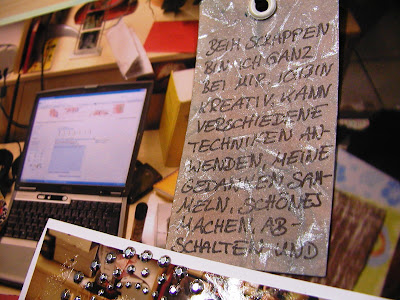 BEIM SCRAPPEN
BIN ICH GANZ
BEI MIR. ICH BIN
KREATIV, KANN
VERSCHIEDENE
TECHNIKEN AN-
WENDEN, MEINE
GEDANKEN SAM-
MELN, SCHÖNES
MACHEN, AB-
SCHALTEN UND